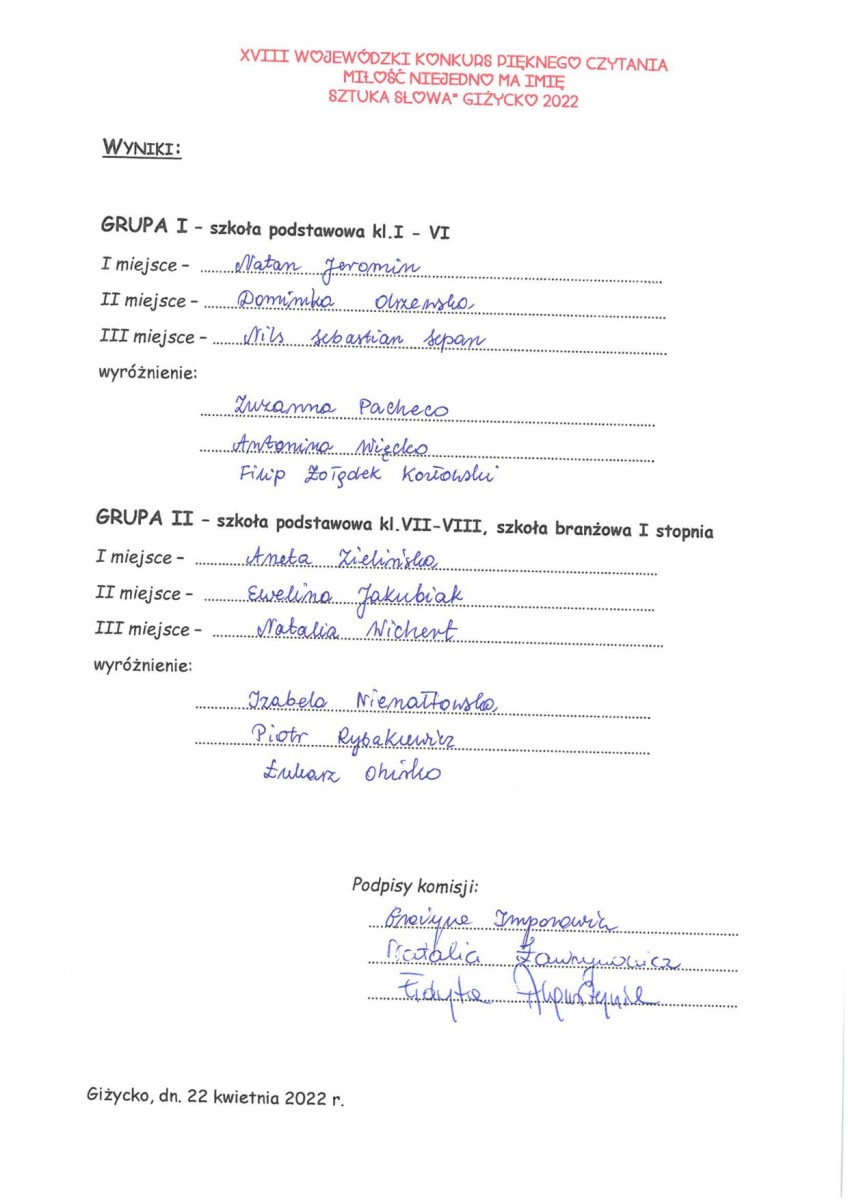 XVIII WOJEWÓDZKI KONKURS PIĘKNEGO CZYTANIA
MIŁOŚĆ NIEJEDNO MA IMIĘ
SZTUKA SŁOWA" GIŻYCKO 2022
WYNIKI:
GRUPA I – szkoła podstawowa kl.I - VI
I miejsce – Natan Jeromin
II miejsce – Dominika Olszewska
III miejsce – Nils Sebastian Sepan
wyróżnienie:
Zuzanna Pacheco
Antonina Więcko
Filip Żołędek Kozłowski
GRUPA II – szkoła podstawowa kl.VII-VIII, szkoła branżowa I stopnia
I miejsce – Aneta Zielińska
II miejsce – Ewelina Jakubiak
III miejsce – Natalia Wichert
wyróżnienie:
Izabela Nienałtowska
Piotr Rybakiewicz
Łukasz
Podpisy komisji:
Grażyna
Natalia
Edyta
Giżycko, dn. 22 kwietnia 2022 r.